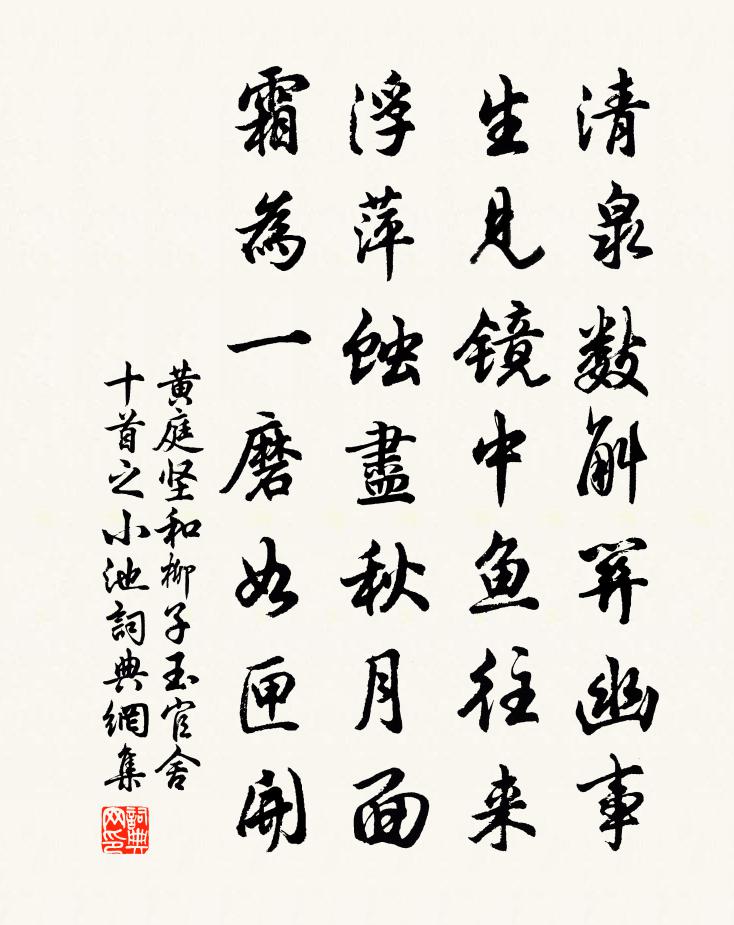 清泉数斛開幽事
生见镜中鱼往来
浮萍蚀盡秋月面
霜為一磨如匣開
黄庭坚和柳子玉官舍
十首之小池詞典網集
詞典网印